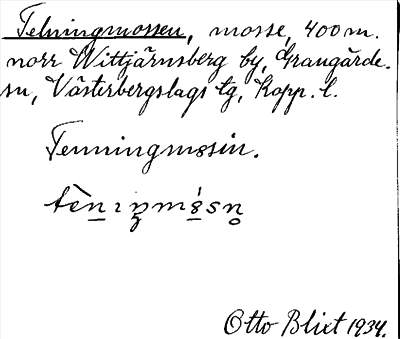 Telningmossen, mosse, 400 m.
norr Wittjärnsberg by, Grangärde
sn, Västerbergslags tg, Kopp. l.
Tenningmosin.
Otto Blixt 1934.